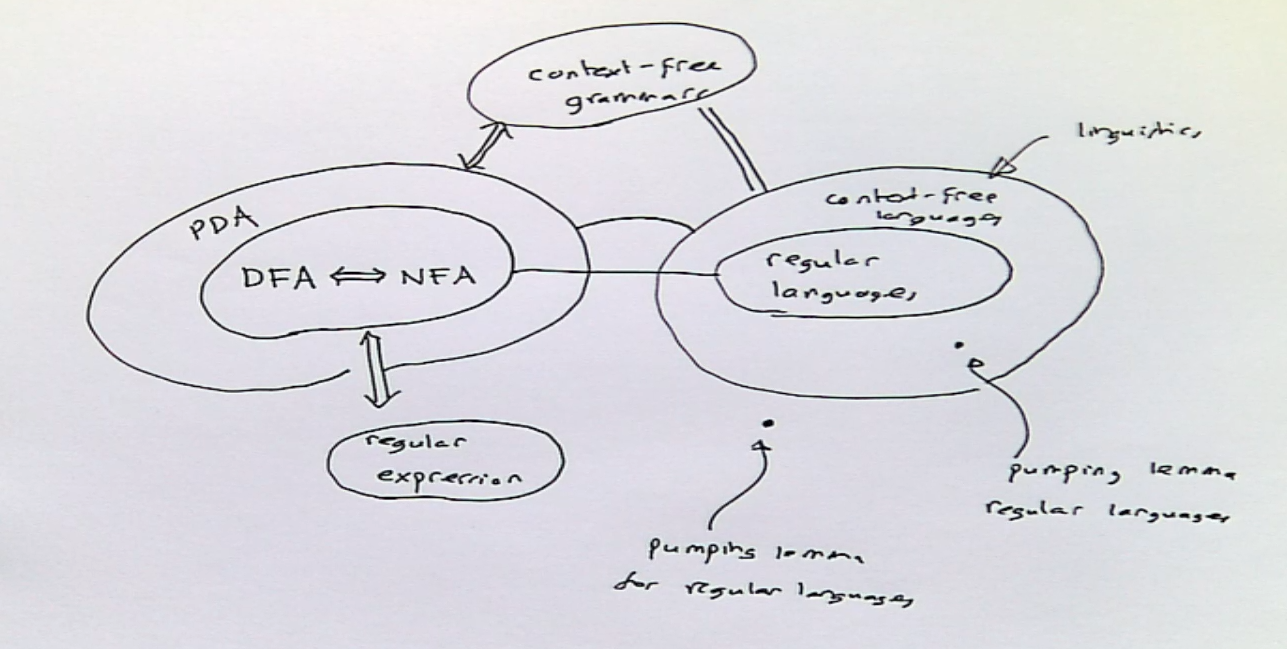 context-free
grammars
linguistics
PDA
context-free
languages
DFA ⇔ NFA
regular
languages
regular
expression
pumping lemma
regular languages
pumping lemma
for regular languages